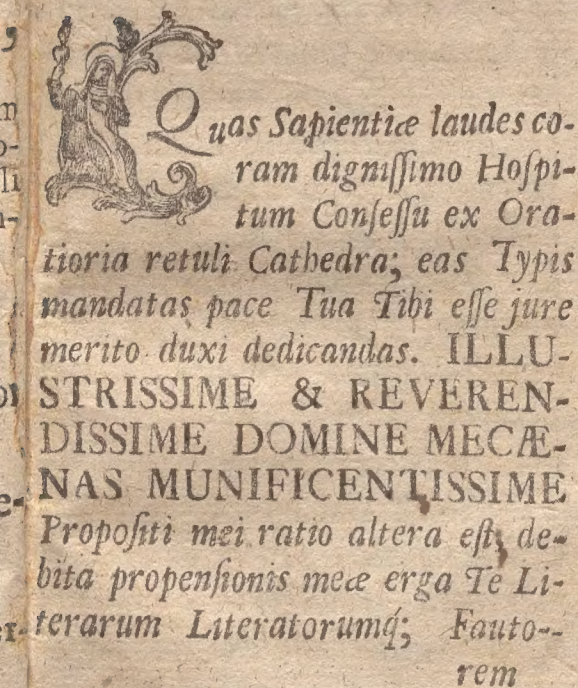 Quas Sapientiæ laudes co-
ram digniſſimo Hoſpi-
tum Conſeſſu ex Ora-
tioria retuli Cathedra; eas Typis
mandatas pace Tua Tibi eſſe jure
merito duxi dedicandas. ILLU-
STRISSIME & REVEREN-
DISSIME DOMINE MECÆ-
NAS MUNIFICENTISSIME
Propoſiti mei ratio altera eſt; de-
bita propenſionis meæ erga Te Li-
terarum Literatorumq́; Fauto--
rem